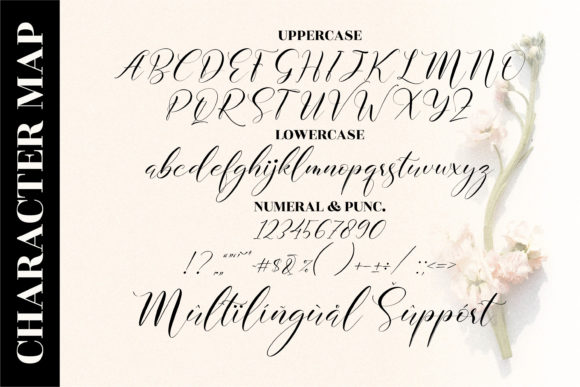 CHARACTER MAP
UPPERCASE
ABCDEFGHIJKLMNO
PQRSTUVWXYZ
LOWERCASE
abcdefghijklmnopqrstuvwxyz
NUMERAL & PUNC.
1234567890
!? #$& %()+-±÷/:;<=>
Mûltïlíñgùål Šûppórt